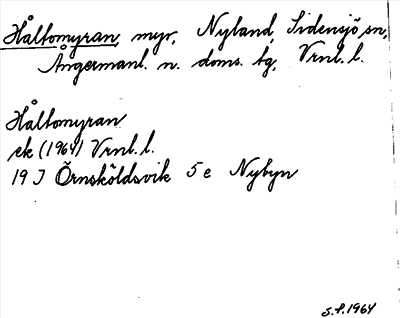 Håltomyran, myr, Nyland, Sidensjö sn,
Ångermanl. n. doms. tg, Vrnl. l.
Håltomyran
ek (1964) Vrnl. l.
19 J Örnsköldsvik 5 e Nybyn
S.f. 1964